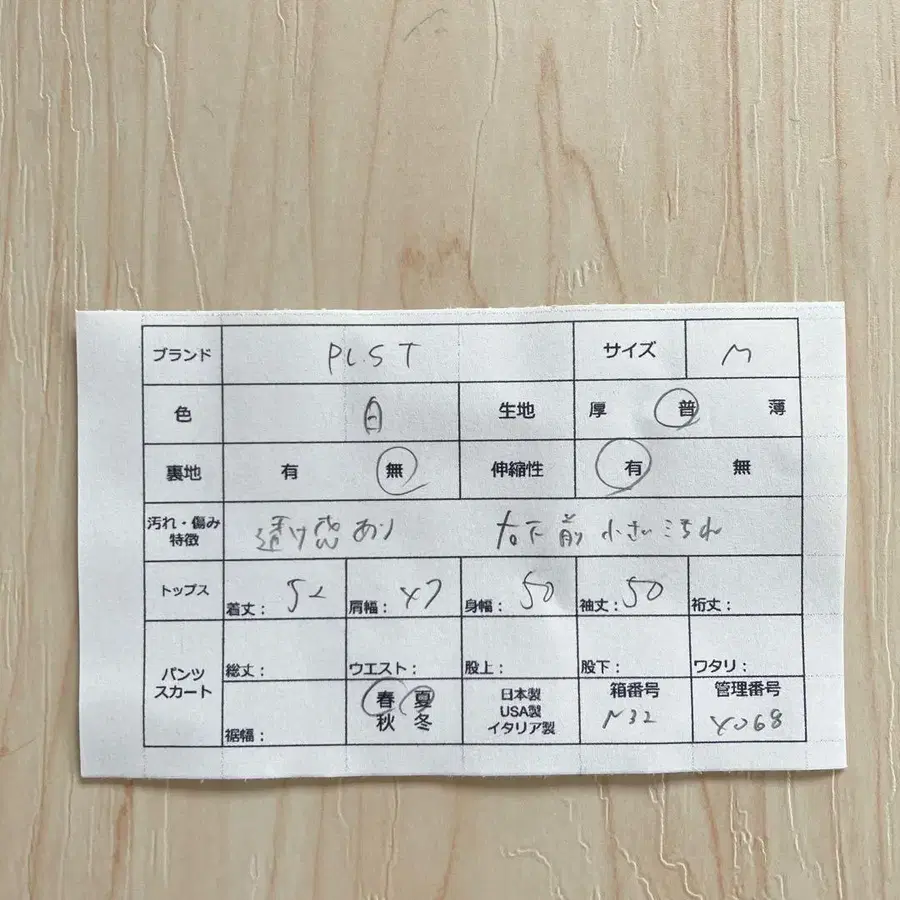 ブランド PLST サイズ M
色 白 生地 厚 普 薄
裏地 有 無 伸縮性 有 無
汚れ・傷み
特徴 透け感あり 右下前 小さい汚れ
トップス 着丈： 52 肩幅： 47 身幅： 50 袖丈： 50 裄丈：
パンツ
スカート 総丈： ウエスト： 股上： 股下： ワタリ：
裾幅： 春 夏
秋 冬
日本製
USA製
イタリア製
箱番号
N32
管理番号
4068